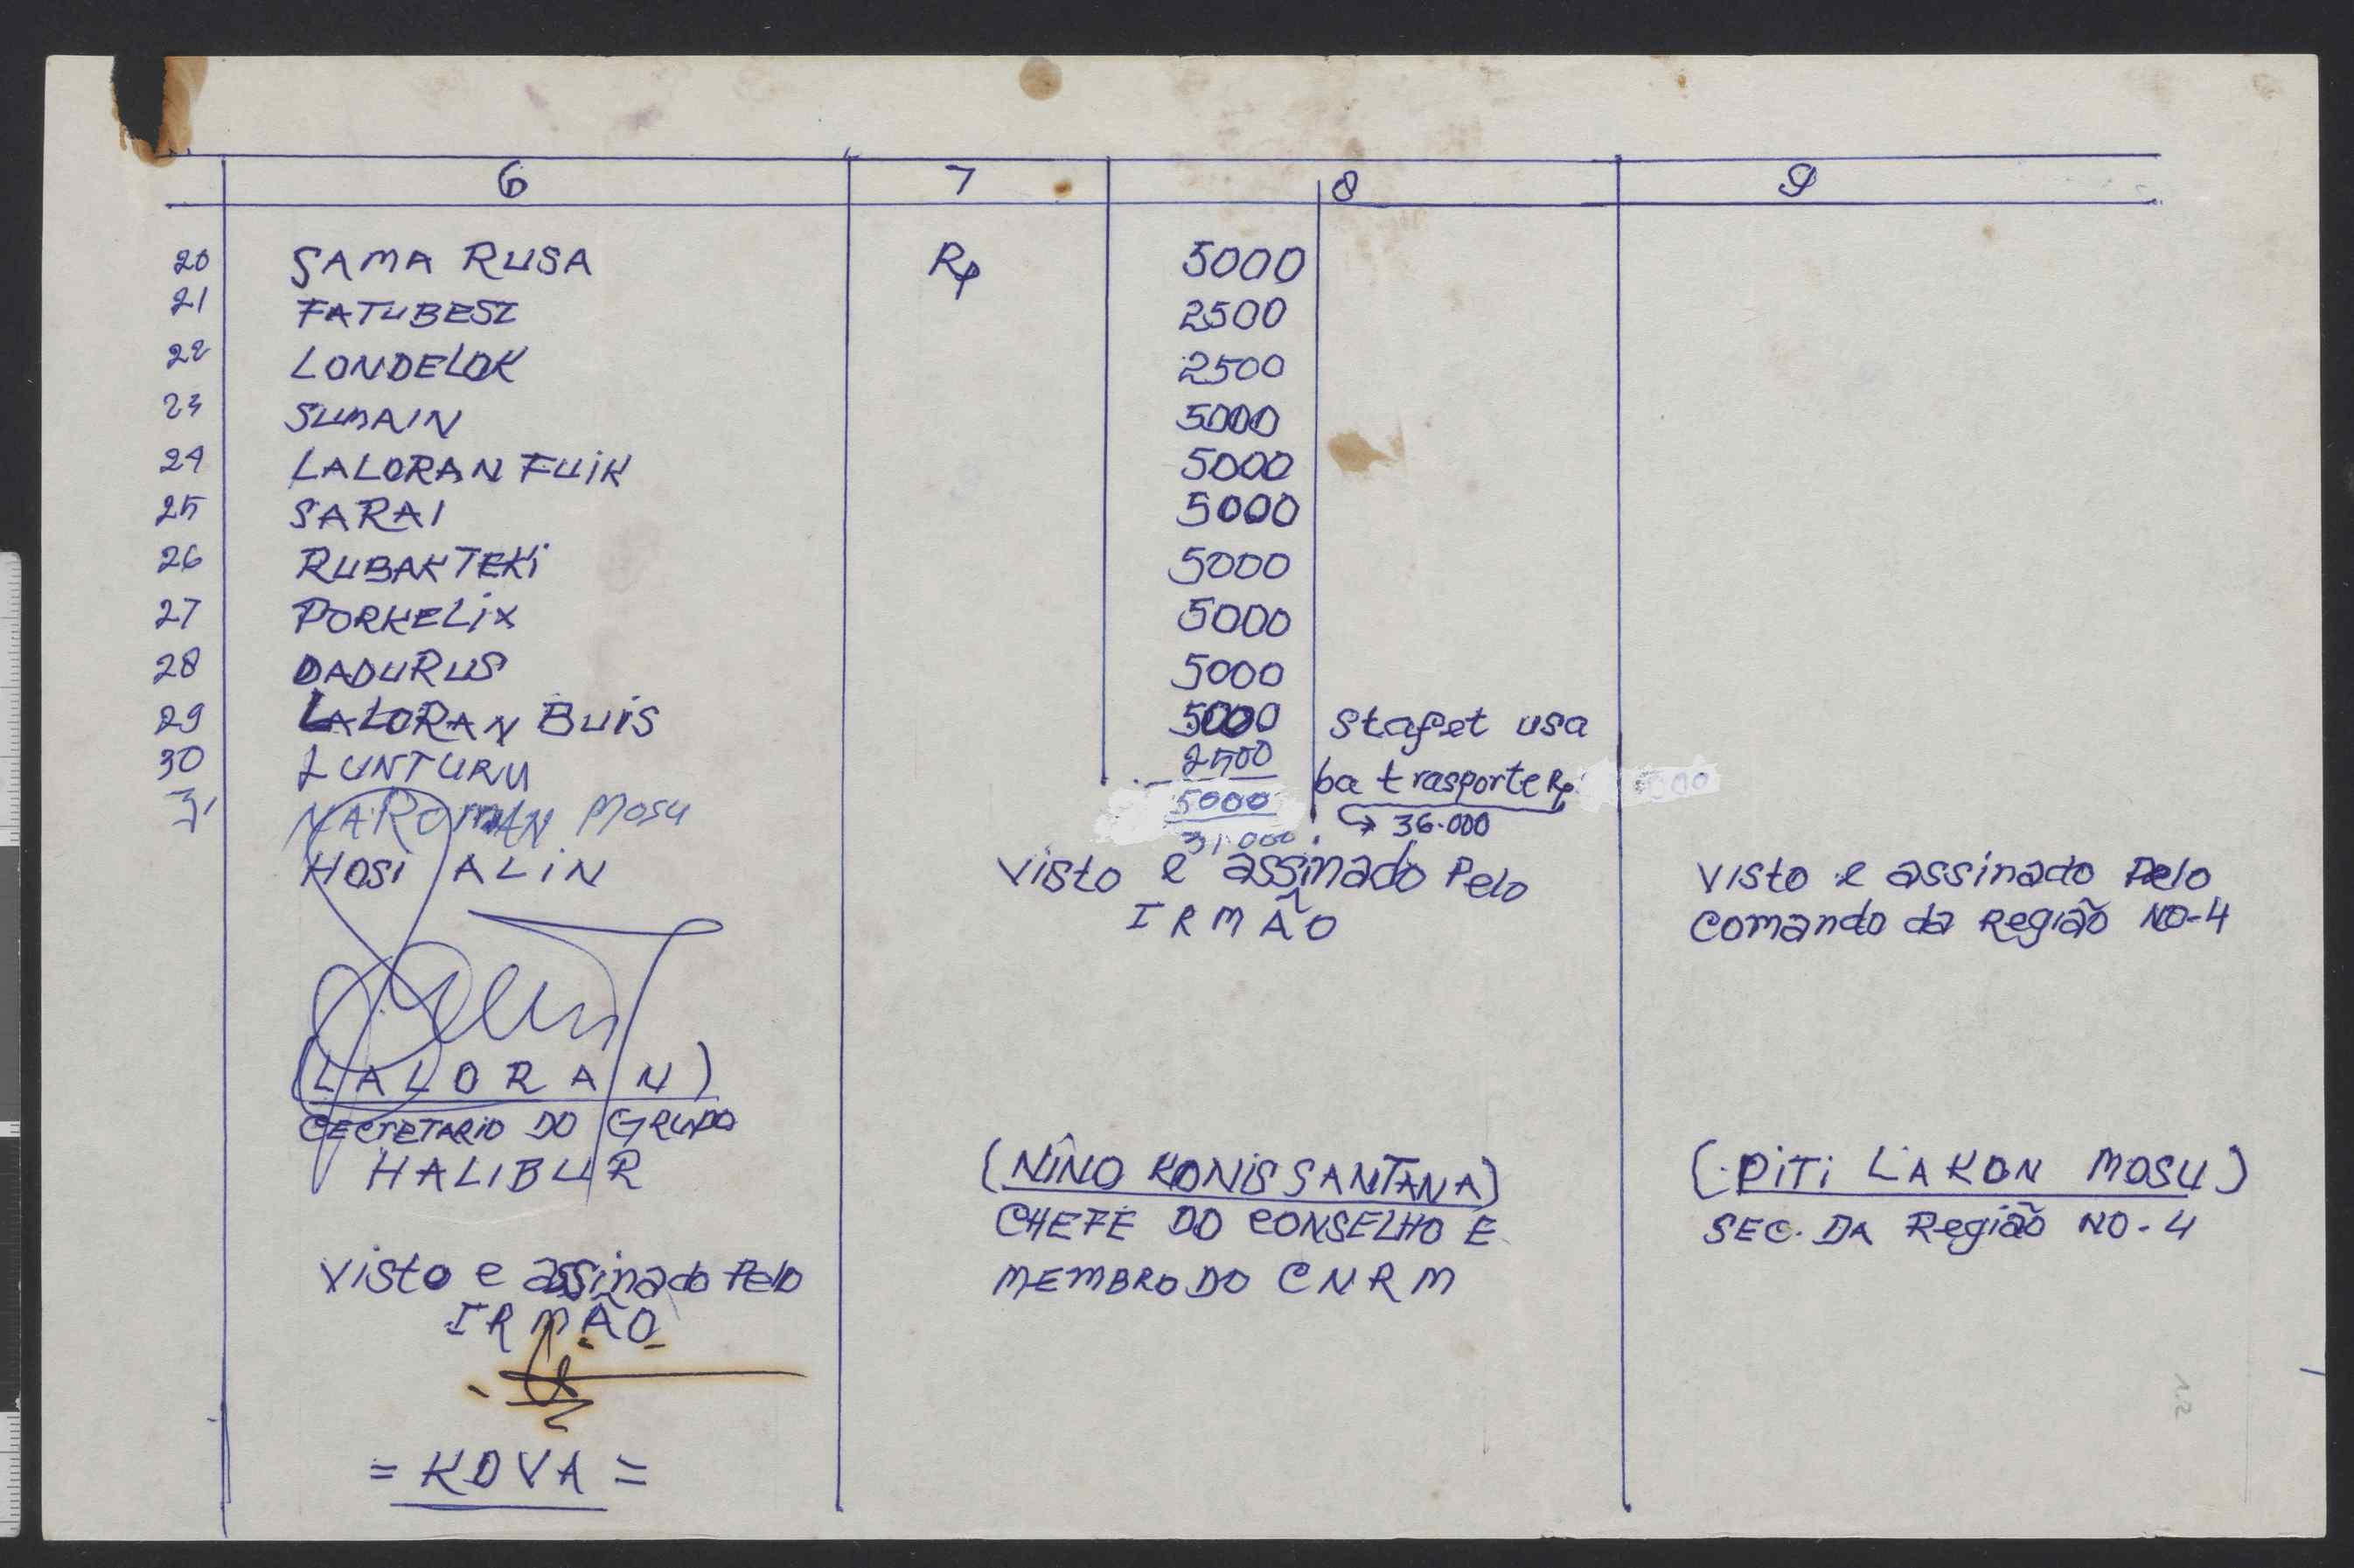 6 7 8 9
20 SAMA RUSA Rp 5000
21 FATUBESI 2500
22 LONDELOK 2500
23 SUMAIN 5000
24 LALORAN FUIK 5000
25 SARAI 5000
26 RUBAK TEKI 5000
27 PORKELIX 5000
28 DADURUS 5000
29 LALORAN BUIS 5000 stafet usa
30 LUNTURU 2500 ba trasporte Rp
31 NAROMAN Mosu 5000
31.000 36.000
HOSI ALIN
Visto e assinado Pelo
IRMÃO
Visto e assinado Pelo
Comando da Região NO-4
(LALORAN)
CECTETARIO DO GRUPO
HALIBUR
(NINO KONIS SANTANA)
CHEFE DO CONSELHO E
MEMBRO DO CNRM
(DITI LAKON MOSU)
SEC. DA Região NO-4
Visto e assinado Pelo
IRMÃO
= KOVA =
12